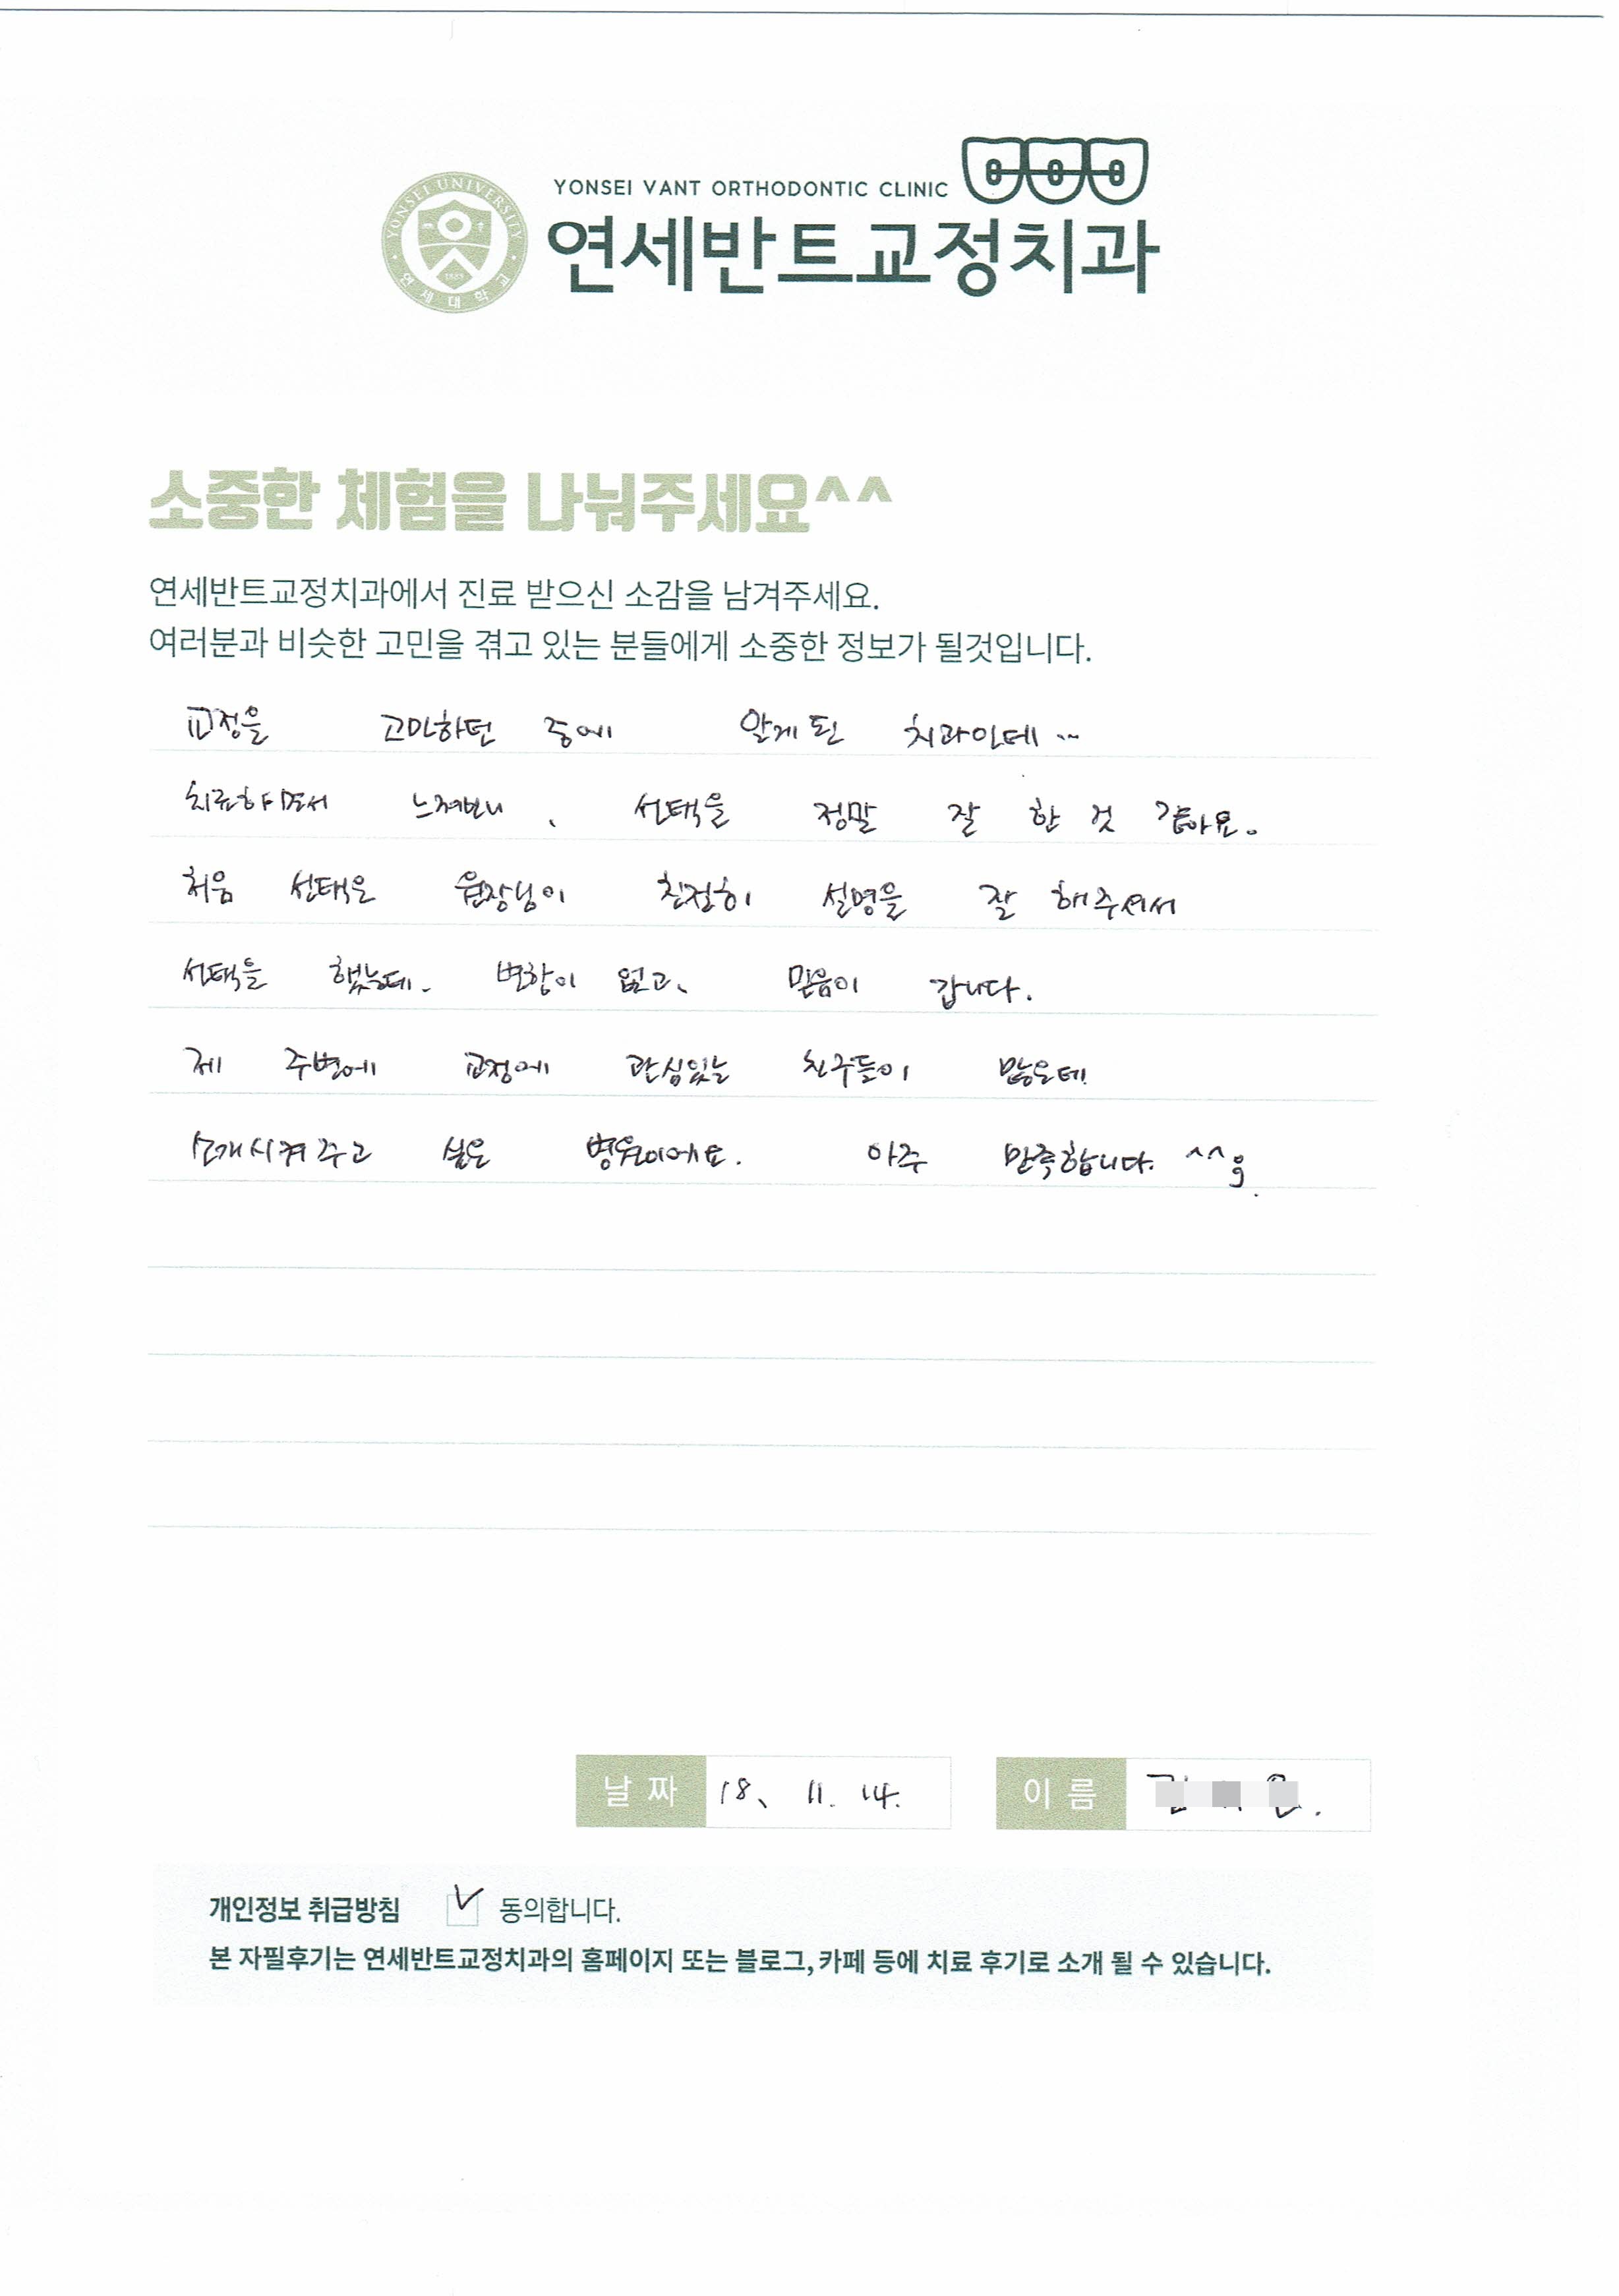 YONSEI UNIVERSITY
1885
연세대학교
YONSEI VANT ORTHODONTIC CLINIC
연세반트교정치과
소중한 체험을 나눠주세요^^
연세반트교정치과에서 진료 받으신 소감을 남겨주세요.
여러분과 비슷한 고민을 겪고 있는 분들에게 소중한 정보가 될것입니다.
교정을 고민하던 중에 알게된 치과인데...
치료하면서 느껴보니, 선택을 정말 잘 한 것 같아요.
처음 선택은 원장님이 친절히 설명을 잘 해주셔서
선택을 했는데. 변함이 없고, 믿음이 갑니다.
제 주변에 교정에 관심있는 친구들이 많은데
소개시켜주고 싶은 병원이에요. 아주 만족합니다. ^^
날짜 18. 11. 14.
이름
개인정보 취급방침 ✓ 동의합니다.
본 자필후기는 연세반트교정치과의 홈페이지 또는 블로그, 카페 등에 치료 후기로 소개 될 수 있습니다.